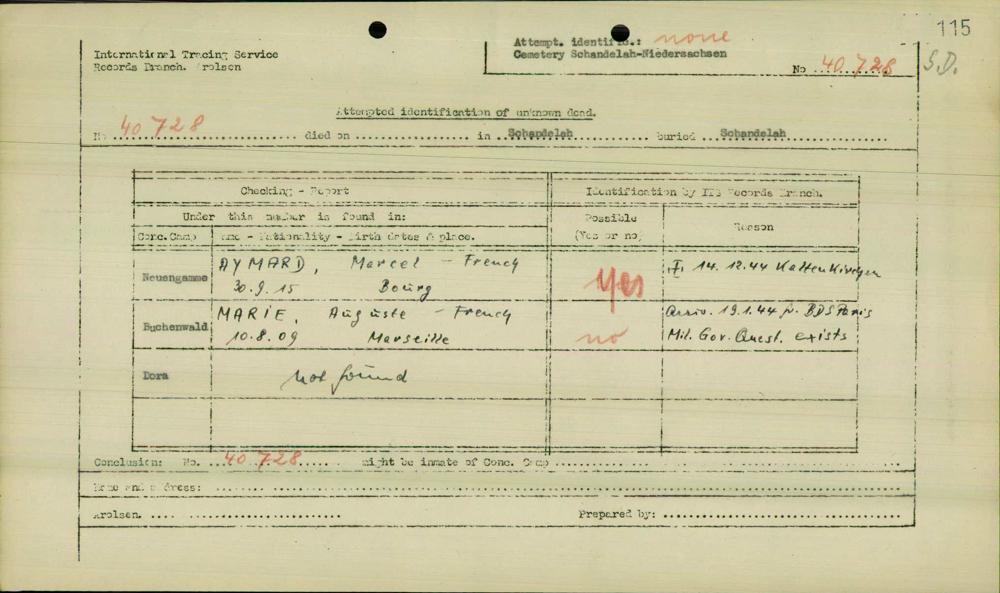 115
Attempt. identific.: none
International Tracing Service
Cemetery Schandelah-Niedersachsen
Records Branch. Arolsen
No ..40 728
S.D.
Attempted identification of unknown dead.
No 40 728 died on .................. in ..Schandelah.......... buried ..Schandelah..........
Checking - Report
Identification by ITS Records Branch.
Under this number is found in:
Possible
(Yes or no)
Reason
Conc.Camp
Name - Nationality - Birth dates & place.
AYMARD, Marcel - French
Neuengamme
30.9.15 Bourg
Yes
14.12.44 Kaltenkirchen
MARIE, Auguste - French
Buchenwald
10.8.09 Marseille
no
Arriv. 19.1.44 fr. BDS Paris
Mil. Gov. Quest. exists
Dora
not found
Conclusion: No. ...40 728...... might be inmate of Conc. Camp ..................
Name and address: ..................
Arolsen. ..................
Prepared by: ..................